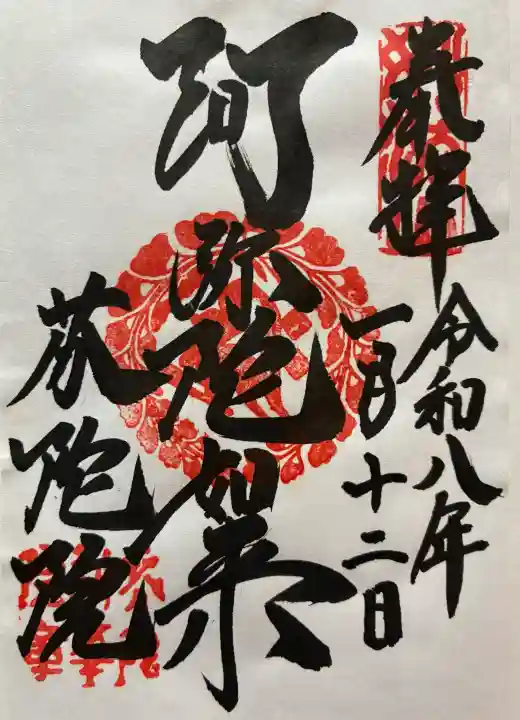 奉拝
令和八年
一月十二日
阿弥陀如来
蔡陀院